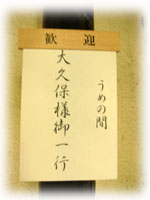 歓迎
うめの間
大久保様御一行